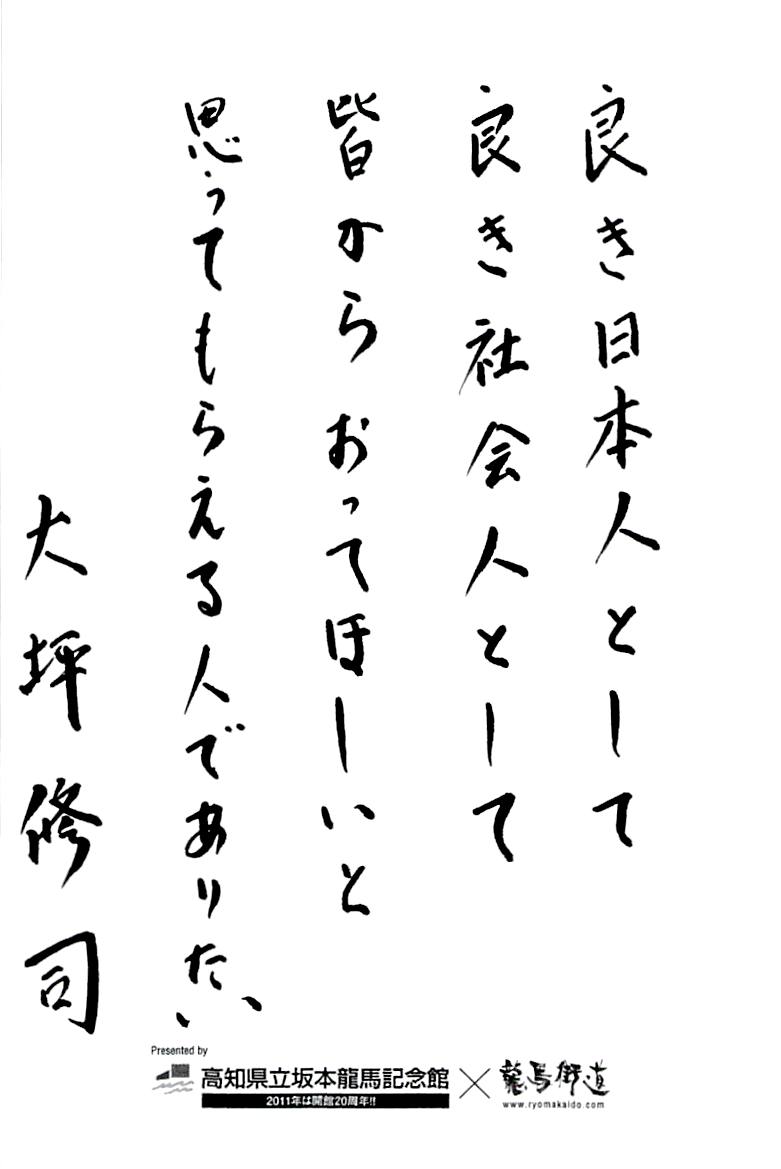 良き日本人として
良き社会人として
皆からおってほしいと
思うてもらえる人でありたい
大坪修司
Presented by
高知県立坂本龍馬記念館
2011年は開館20周年!!
×
龍馬街道
www.ryomakaido.com